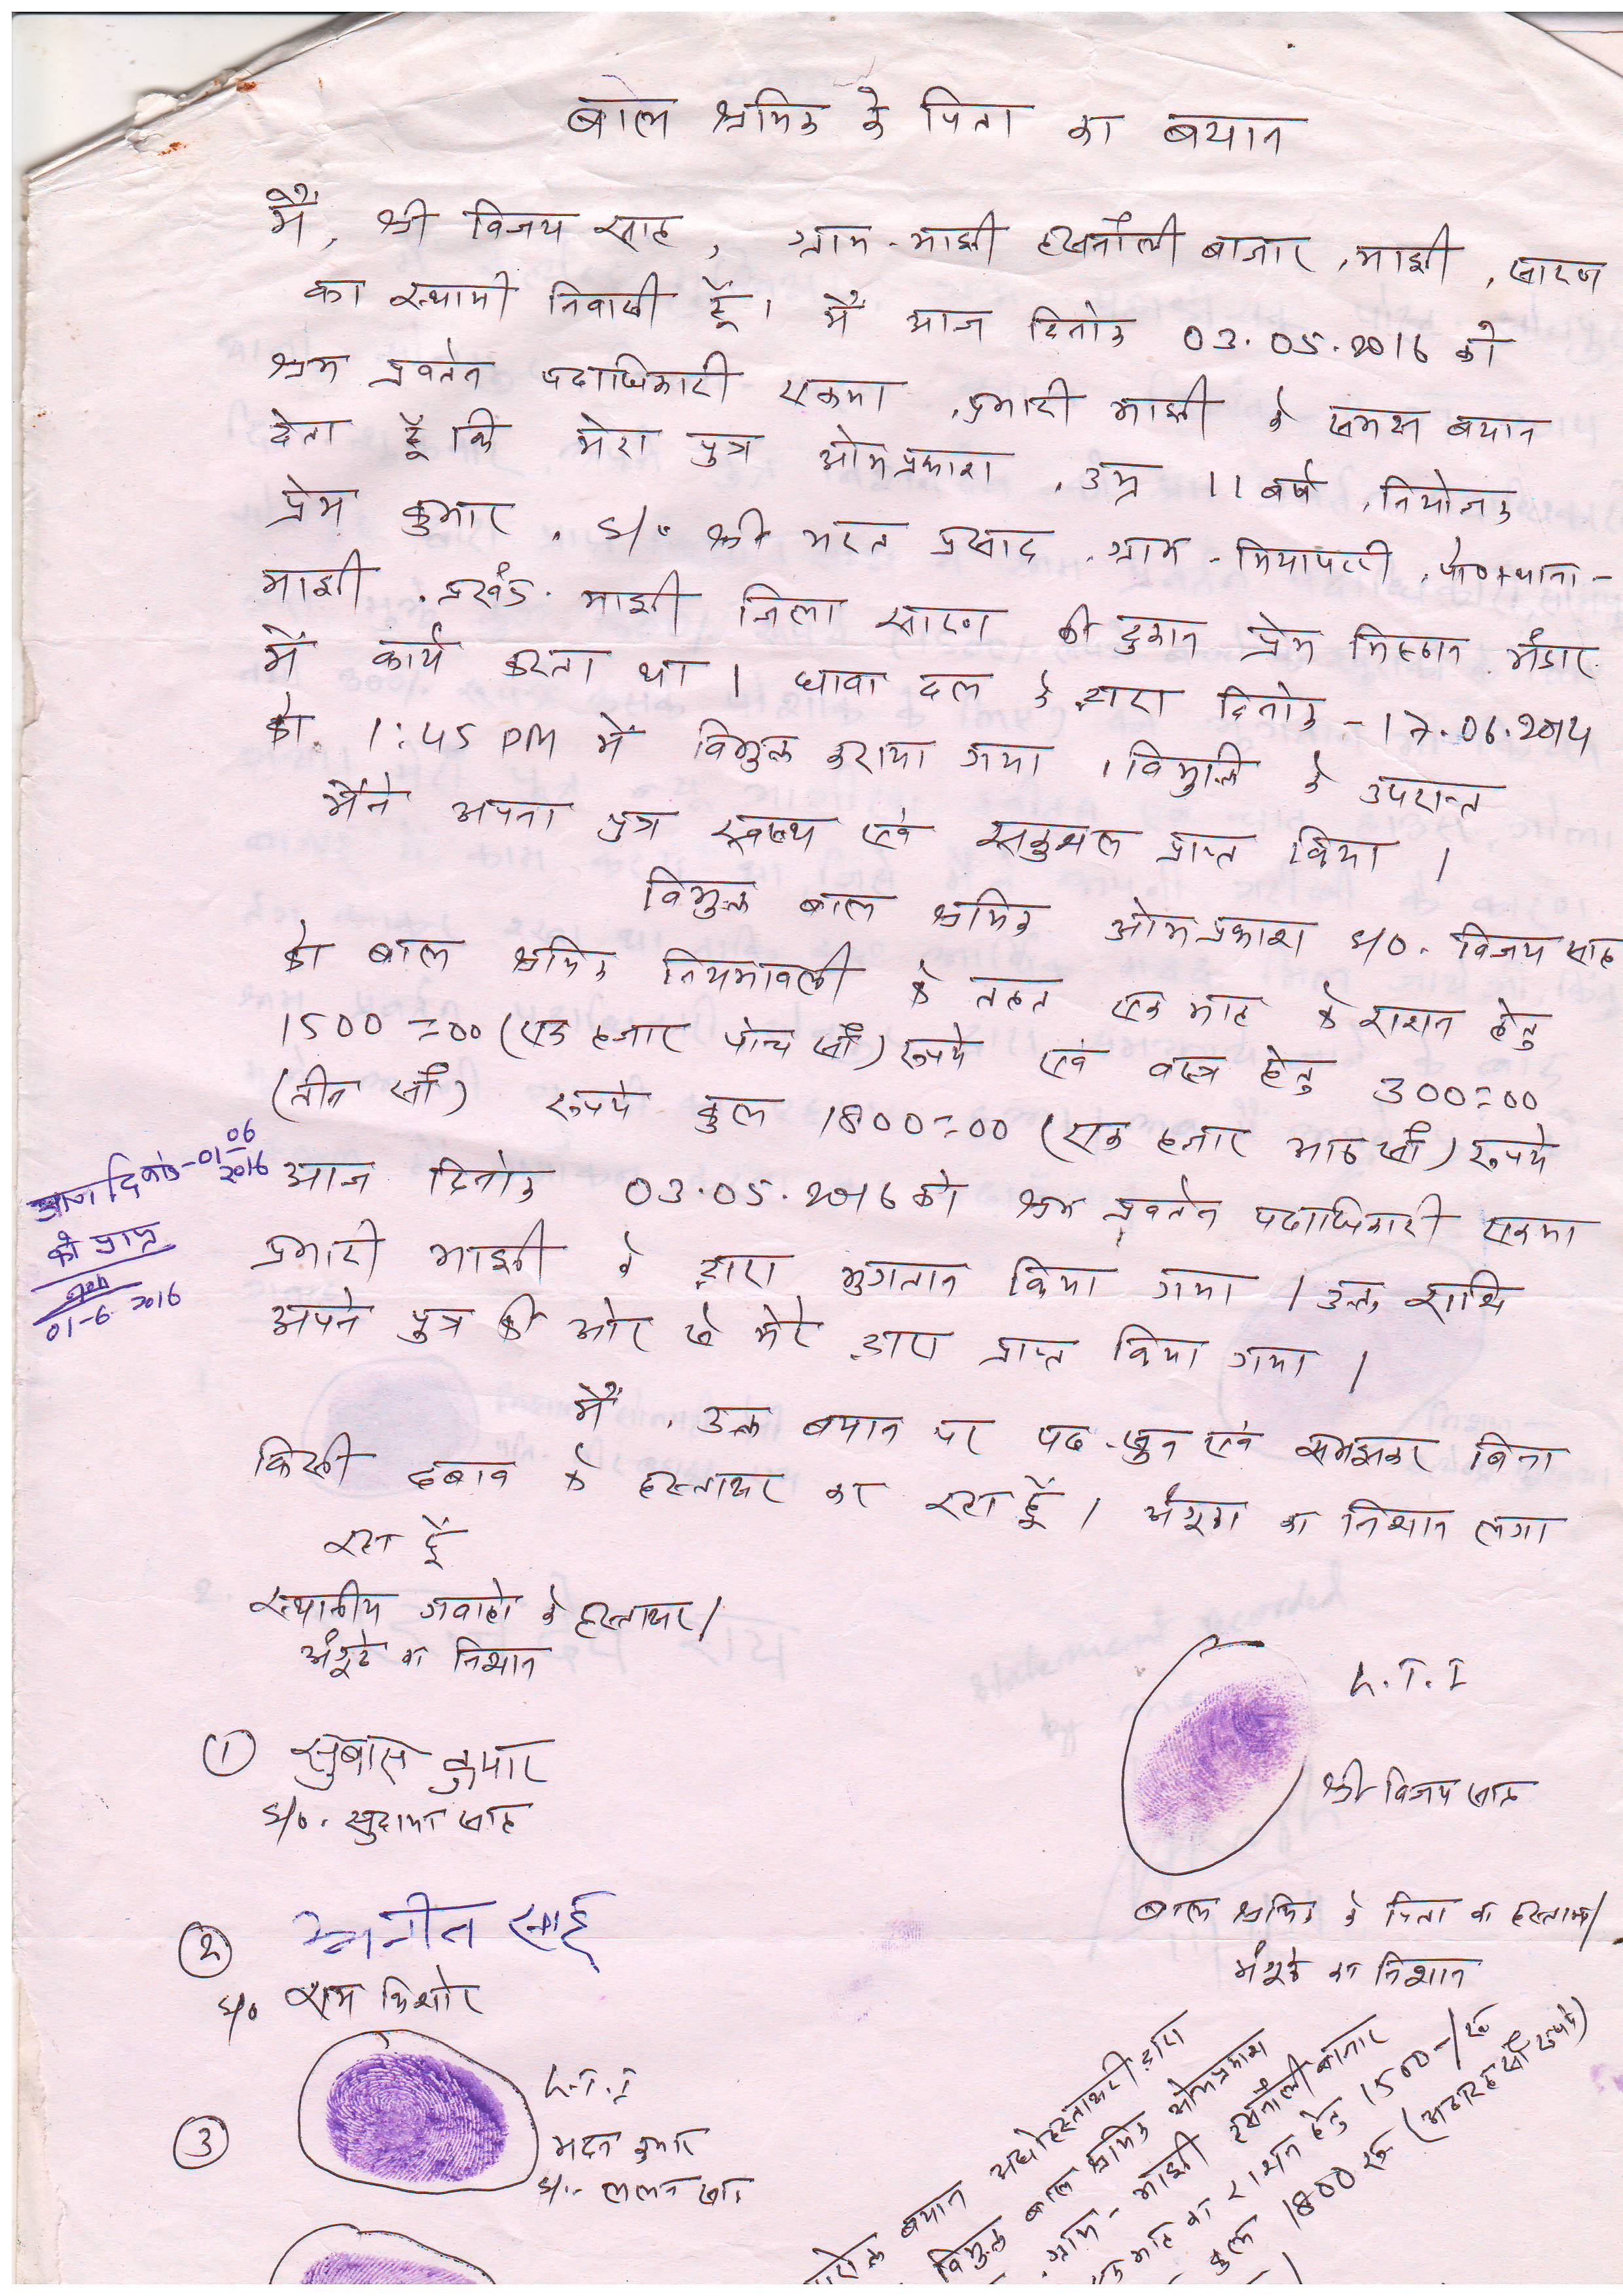 बाल श्रमिक के पिता का बयान
मैं, श्री विजय साह, ग्राम - माझी हसनौली बाजार, माझी, सारण
का स्थायी निवासी हूँ। मैं आज दिनांक 03.05.2016 को
श्रम प्रवर्तन पदाधिकारी एकमा, प्रभारी माझी के समक्ष बयान
देता हूँ कि मेरा पुत्र ओमप्रकाश, उम्र 11 वर्ष, नियोजक
प्रेम कुमार, S/o श्री भरत प्रसाद, ग्राम - मियापट्टी, पो०+थाना-
माझी, प्रखंड. माझी जिला सारण की दुकान प्रेम मिष्ठान भंडार
में कार्य करता था। धावा दल के द्वारा दिनांक - 17.06.2014
को 1:45 PM में विमुक्त कराया गया। विमुक्ति के उपरान्त
मैंने अपना पुत्र स्वस्थ एवं सकुशल प्राप्त किया।
विमुक्त बाल श्रमिक ओमप्रकाश S/o. विजय साह
को बाल श्रमिक नियमावली के तहत एक माह के राशन हेतु
1500=00 (एक हजार पाँच सौ) रूपये एवं वस्त्र हेतु 300=00
(तीन सौ) रूपये कुल 1800=00 (एक हजार आठ सौ) रूपये
आज दिनांक 03.05.2016 को श्रम प्रवर्तन पदाधिकारी एकमा
प्रभारी माझी के द्वारा भुगतान किया गया। उक्त राशि
अपने पुत्र की ओर से मेरे द्वारा प्राप्त किया गया।
मैं, उक्त बयान पर पढ़-सुन एवं समझकर बिना
किसी दबाव के हस्ताक्षर कर रहा हूँ। अँगूठा का निशान लगा
रहा हूँ
आज दिनांक-01-06
2016
को प्राप्त
01-6-2016
स्थानीय गवाहो के हस्ताक्षर/
अँगूठे का निशान
① सुबास कुमार
S/o. सुदामा साह
②
S/o राम किशोर
③ L.T.I
मदन कुमार
S/o- ललन साह
L.T.I
श्री विजय साह
बाल श्रमिक के पिता का हस्ताक्षर/
अँगूठे का निशान
बयान अधोहस्ताक्षरी द्वारा
विमुक्त बाल श्रमिक ओमप्रकाश
ग्राम - माझी हसनौली बाजार
माह का राशन हेतु 1500-/रू
कुल 1800 रू (अठारह सौ रूपये)